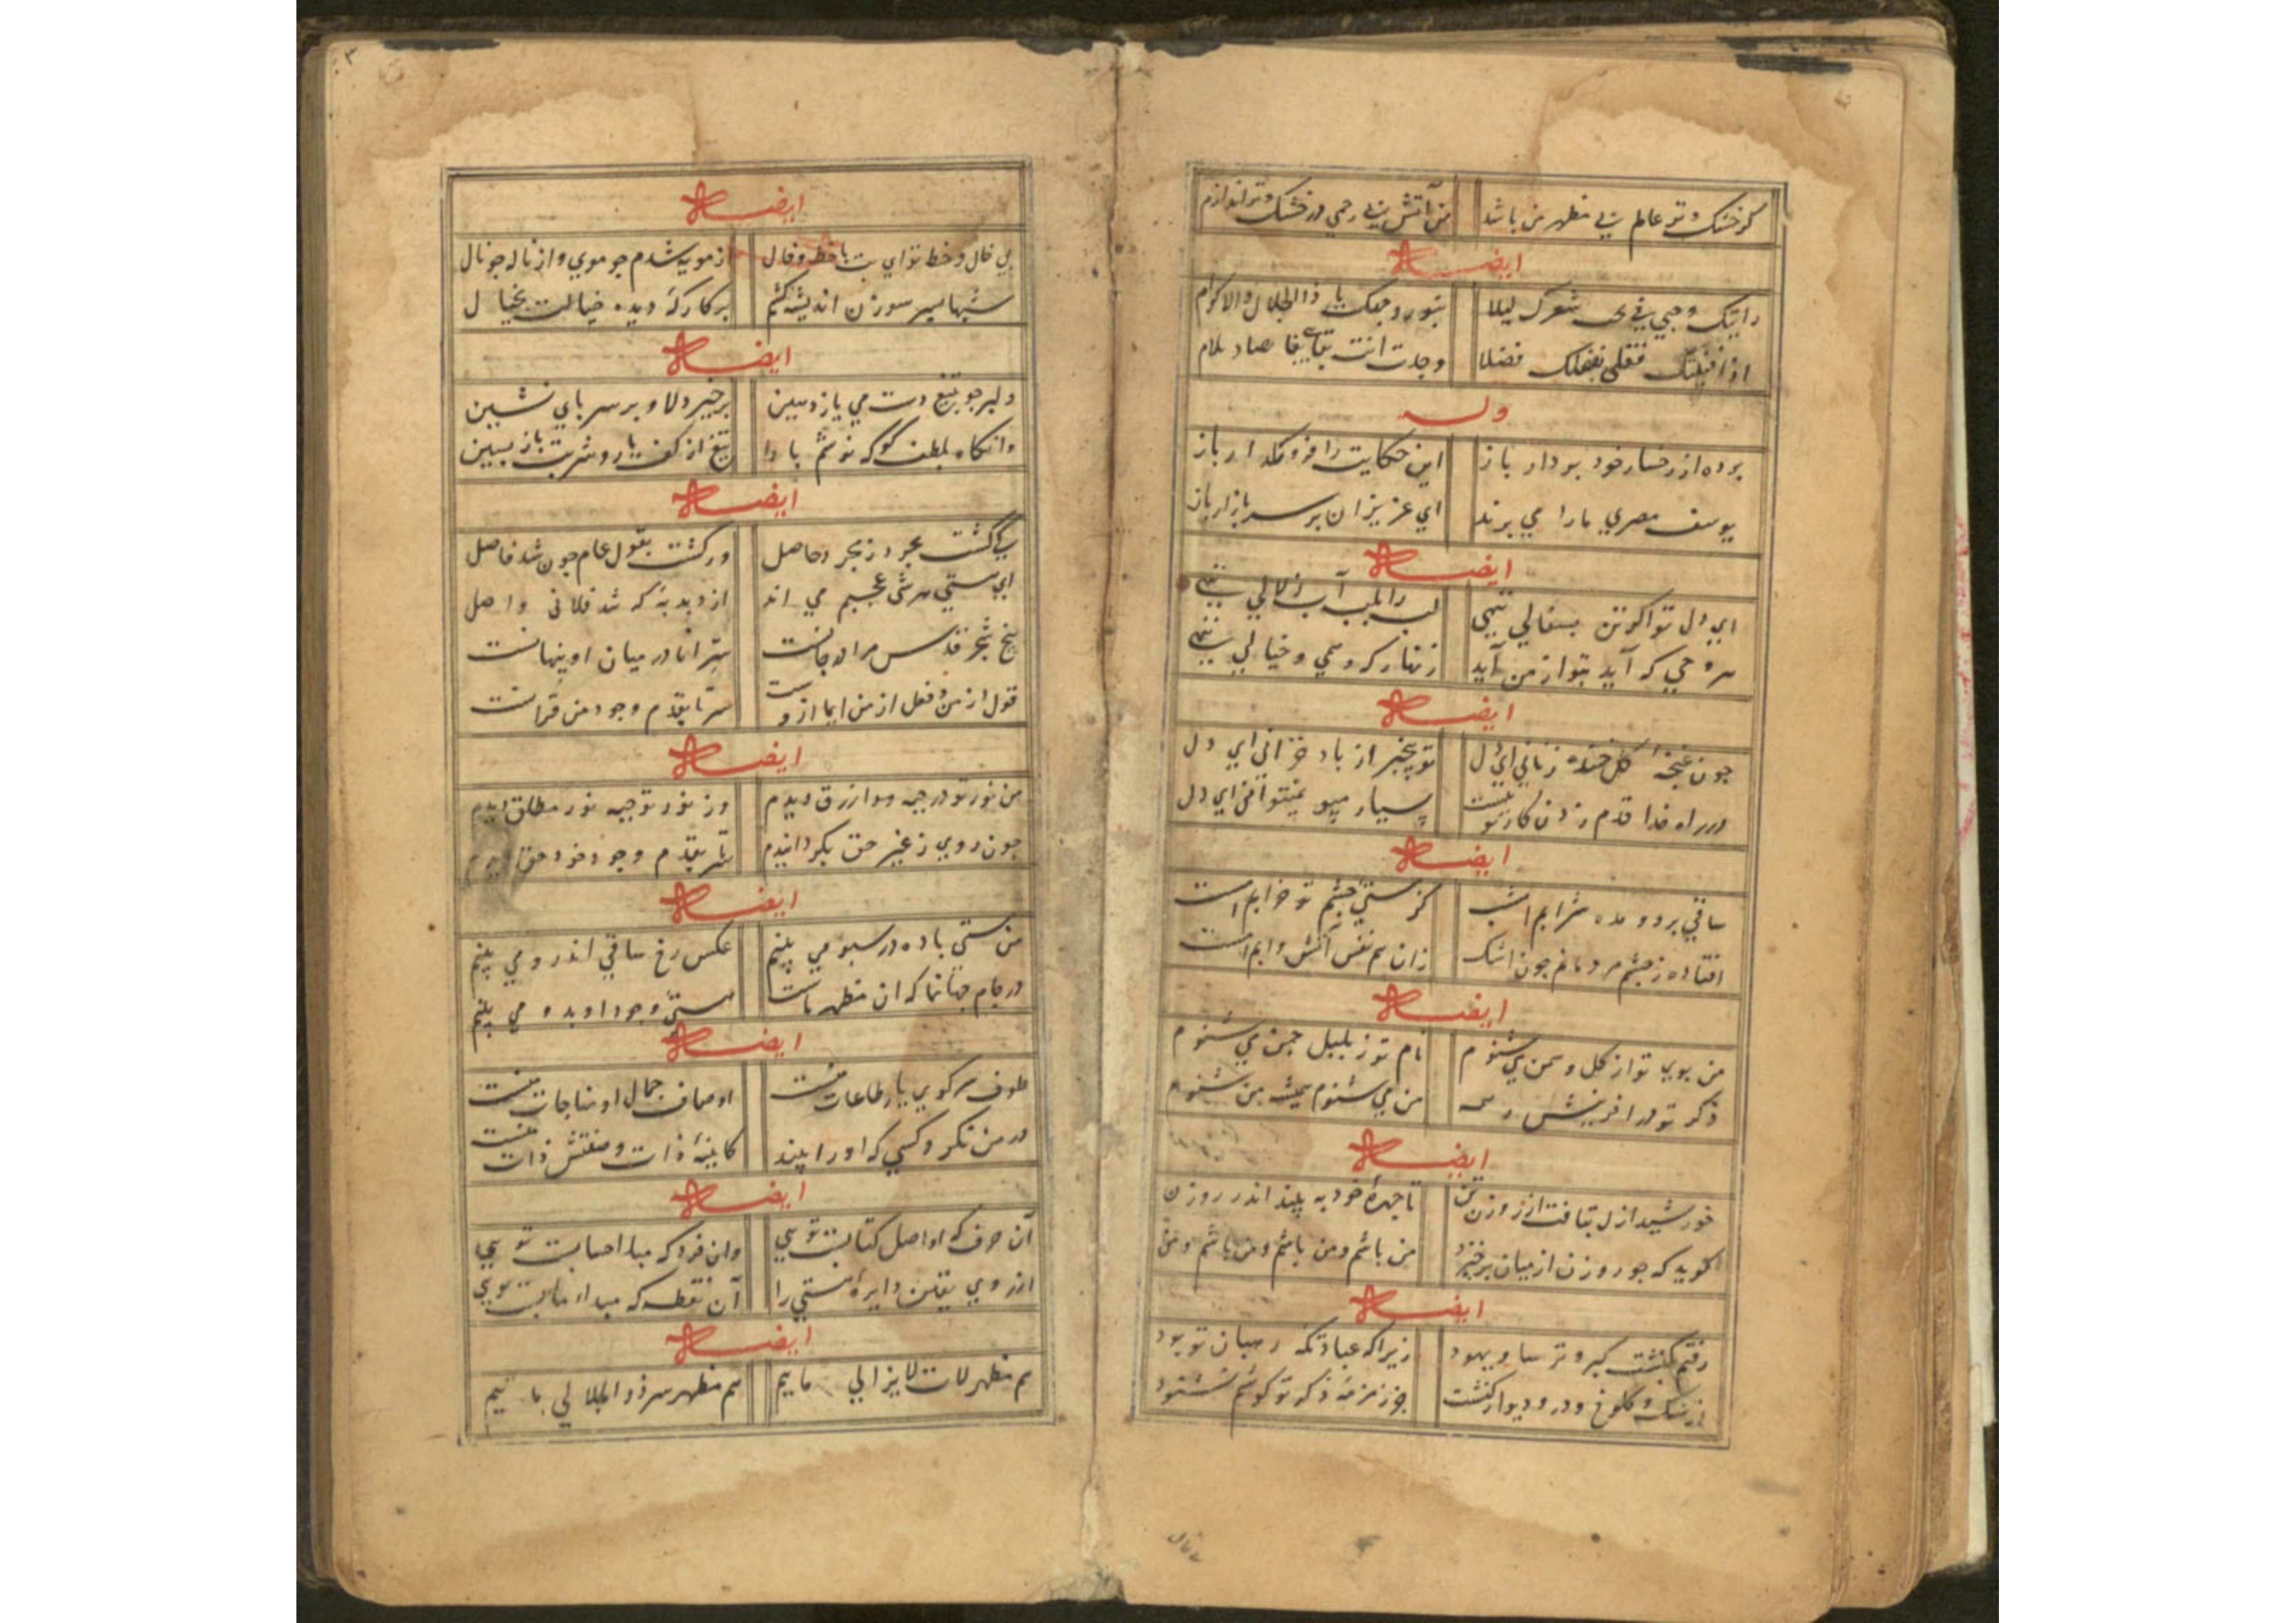 کر خشک و تر عالم نی مظهر من باشد من آتش بی رحمی در خشک و تر اندازم
ایضا
رایتک وجهی فی شعرک لیلا بنور وجهک یا ذا الجلال والاکرام
فضلا وجدت انت
وله
برده از رخسار خود بردار باز این حکایت را فرو مکذار باز
یوسف مصری ما را می برند ای عزیزان بر سر بازار باز
ایضا
ای دل تو اکر تن بسفالی ننهی لب را بلب آب زلالی ننهی
هر وحی که آید بتو از من آید زنهار که وهمی و خیالی ننهی
ایضا
جون غنجهٔ کل خنده زنانی ای دل تو بیخبر از باد خزانی ای دل
در راه خدا قدم زدن کار تو نیست بسیار مپو نمیتوانی ای دل
ایضا
ساقی برو و مده شرابم امشب کز مستی جشم تو خرابم امشب
افتاده ز جشم مردمانم جون اشک زان هم نفس آتش و آبم امشب
ایضا
من بوی تو از کل و سمن می شنوم نام تو ز بلبل جمن می شنوم
ذکر تو در افرینش همه من می شنوم همیشه من می شنوم
ایضا
خورشید ازل بتافت از روزن تن تا جهرهٔ خود به بیند اندر روزن
کوید که جو روزن از میان برخیزد من باشم و من باشم و من باشم و من
ایضا
رفتم بکنشت کبر و ترسا و یهود زیرا که عبادتکه رهبان تو بود
از سنک و کلوخ و در و دیوار کنشت جز زمزمهٔ ذکر تو کوشم نشنود
۳
ایضا
بی خال و خط تو ای بت با خط و خال از مویه شدم جو موی و از ناله جو نال
شبها بسر سوزن اندیشه کشم بر کارکه دیده خیالت بخیال
ایضا
دلبر جو بتیغ دست می یازد هین برخیز دلا و بر سر بای نشین
وانکاه بلطف کو که نوشم بادا تیغ از کف یار و شربت باز بسین
ایضا
ورکشت بقول عام جون شد فاصل
از دبدبه که شد فلانی واصل
بیخ شجر قدس مرا در جانست سر انا در میان او بنهانست
قول از من و فعل از من اما ازوست سر تا بقدم وجود من قرآنست
ایضا
من نور تو در جبه و در ازرق دیدم وز نور تو جبه نور مطلق دیدم
جون روی ز غیر حق بکردانیدم سر تا بقدم وجود خود حق دیدم
ایضا
من مستی باده در سبو می بینم عکس رخ ساقی اندرو می بینم
در جام جهان نما که ان مظهر ماست هستی وجود او بدو می بینم
ایضا
طوف سر کوی یار طاعات منست اوصاف جمال او مناجات منست
در من نکرد کسی که او را بیند کایینهٔ ذات و صفتش ذات منست
ایضا
آن حرف که او اصل کتابست تویی وان فرد که مبدا حسابست تویی
از روی یقین دایرهٔ هستی را آن نقطه که مبدا و مابست تویی
ایضا
هم مظهر ذات لایزالی ماییم هم مظهر سر ذو الجلالی ماییم